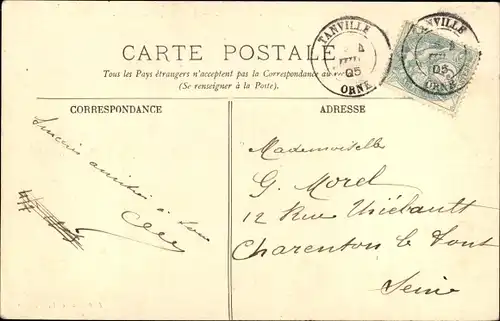 CARTE POSTALE
Tous les Pays étrangers n'acceptent pas la Correspondance au
(Se renseigner à la Poste).
TANVILLE
05
ORNE
TANVILLE
05
ORNE
CORRESPONDANCE
ADRESSE
à
Mademoiselle
G. Morel
12 Rue Thiébault
Charenton le Pont
Seine